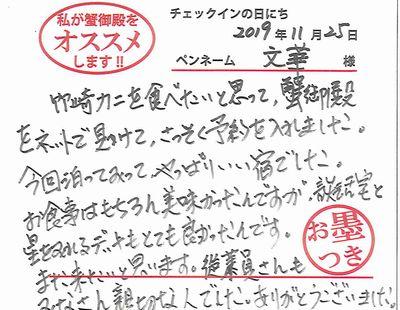 私が蟹御殿を
オススメ
します!!
チェックインの日にち
2019年11月25日
ペンネーム 文華 様
竹崎カニを食べたいと思って、蟹御殿
をネットで見つけて、さっそく予約を入れました。
今回泊ってみて、やっぱりいい宿でした。
お食事はもちろん美味かったんですが、露天風呂と
星を眺れるデッキもとても良かったんです。
また、来たいと思います。従業員さんも
みなさん親切な人でした。ありがとうございました。
お墨
つき